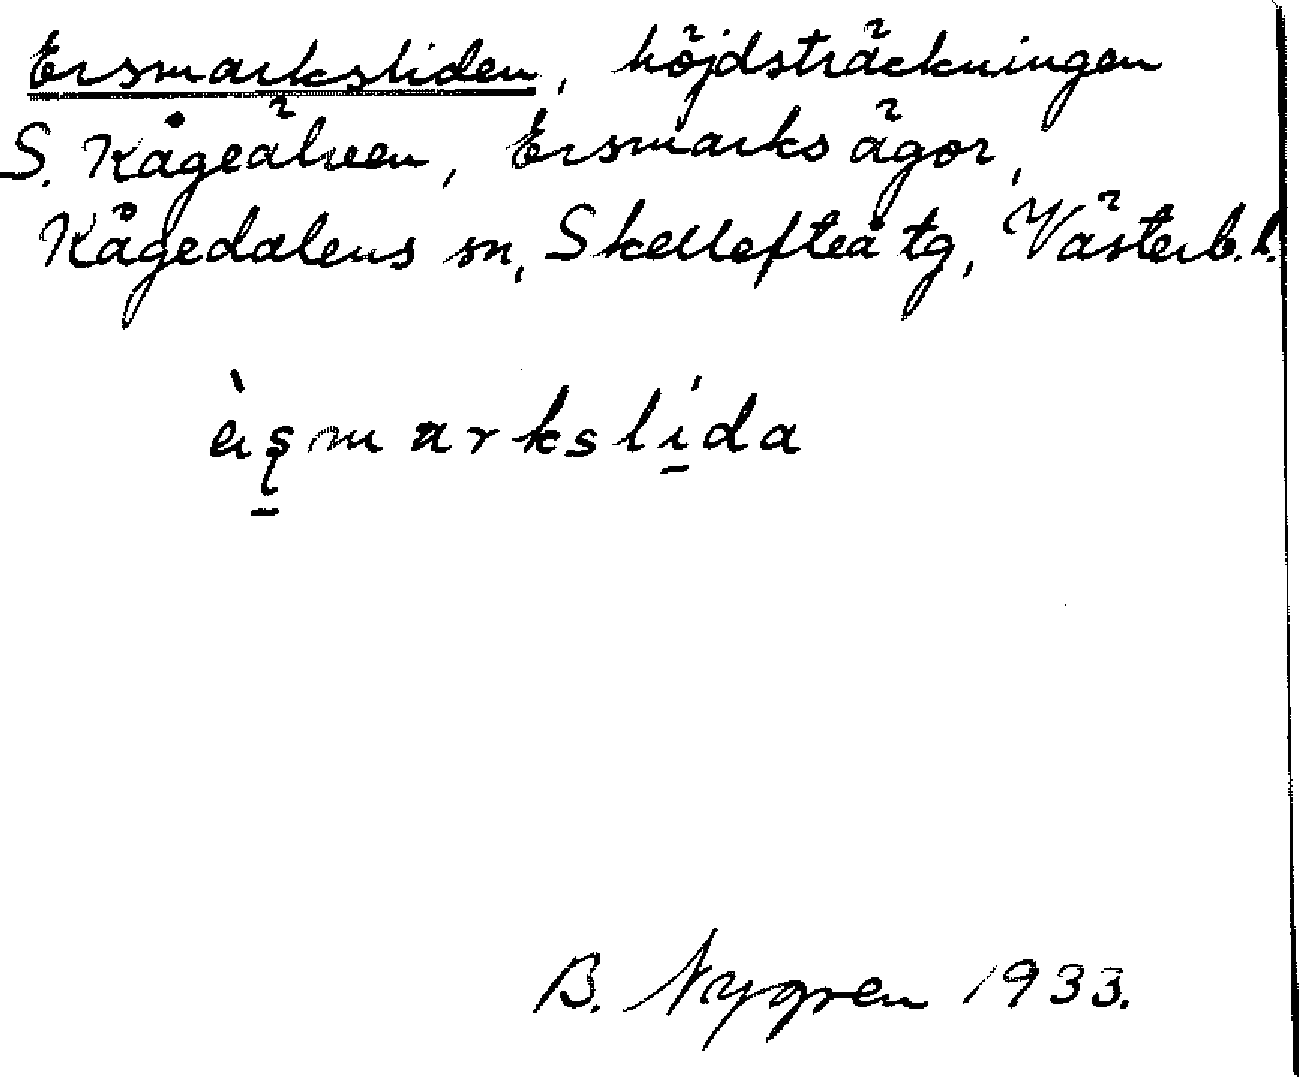 Ersmarksliden, höjdsträckningen
S. Kågeälven, Ersmarks ägor,
Kågedalens sn, Skellefteå tg, Västerb. l.
B. Nygren 1933.